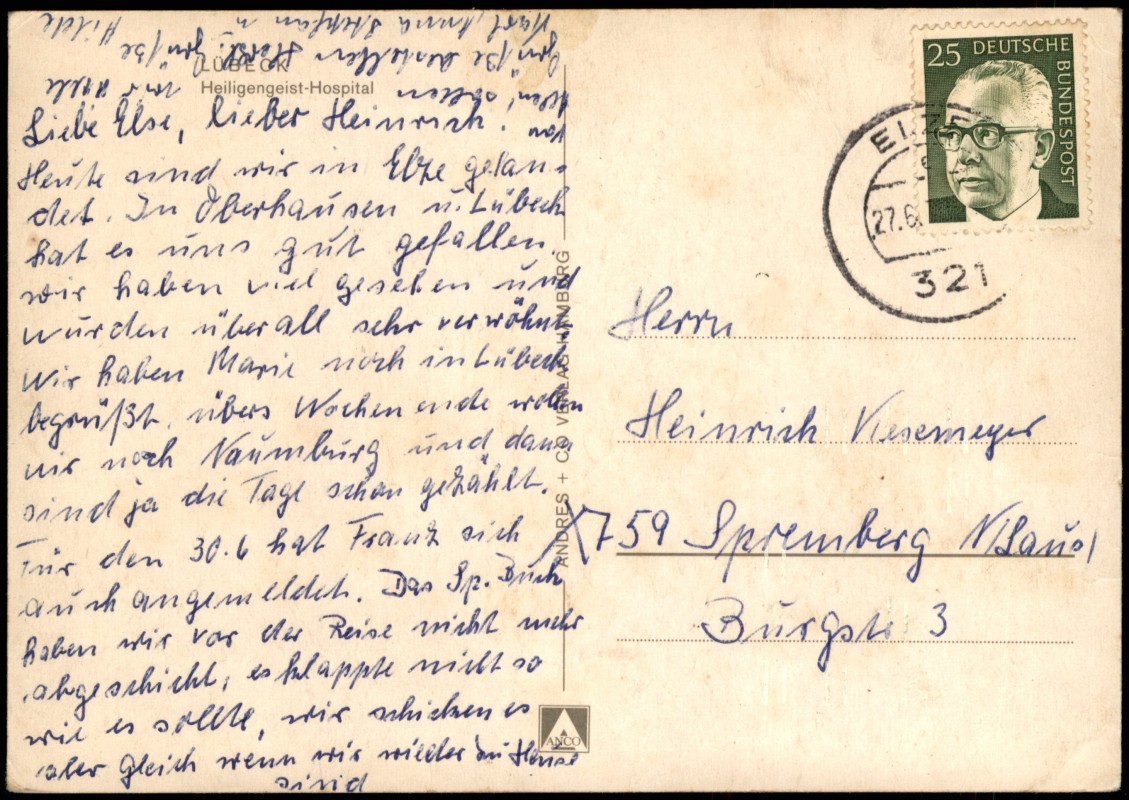 LÜBECK
Heiligengeist-Hospital
Liebe Else, lieber Heinrich!
Heute sind wir in Elze gelan-
det. In Oberhausen u. Lübeck
hat es uns gut gefallen.
wir haben viel gesehen und
wurden überall sehr verwöhnt.
Wir haben Marie noch in Lübeck
begrüßt. übers Wochenende wollen
wir noch Naumburg und dann
sind ja die Tage schon gezählt.
Für den 30.6 hat Franz sich
auch angemeldet. Das Sp. Buch
haben wir vor der Reise nicht mehr
abgeschickt, es klappte nicht so
wie es sollte, wir schicken es
aber gleich wenn wir wieder zu Hause
sind
sollen wir alle
Grüße bestellen Grüße
Karl, Anna Stephan u
Hilde
ANDRES + CO VERLAG HAMBURG
ANCO
25 DEUTSCHE BUNDESPOST
ELZE
27.6.
321
Herrn
Heinrich Viesemeyer
X759 Spremberg N/Laus)
Burgstr 3